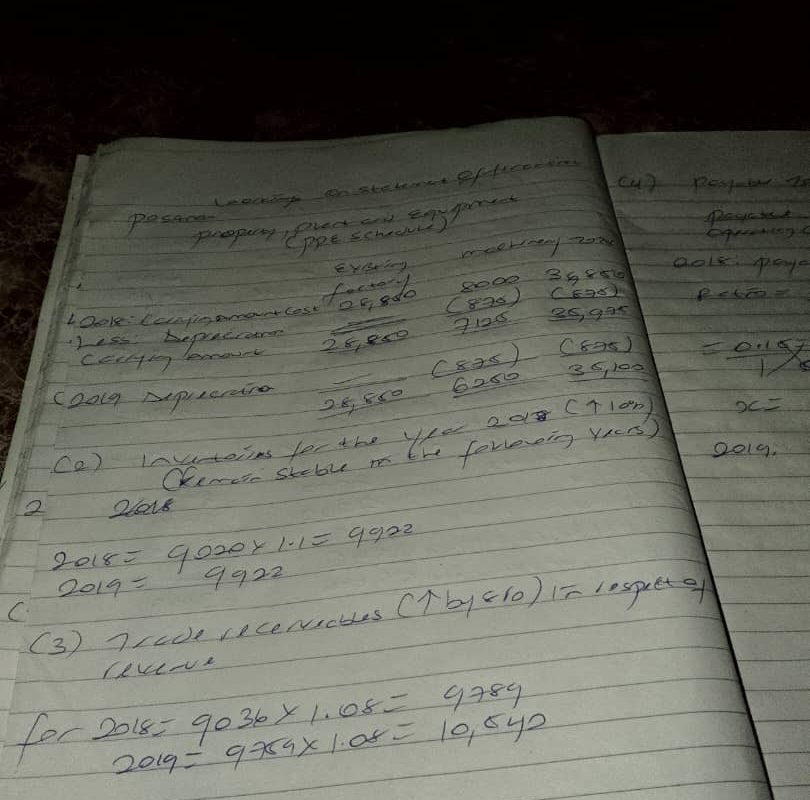 Looking on statement of
property, plant and equipment
(PPE schedule)
Existing machinery
factory
2018: Carrying amount cost 28,850 8000 36,850
Less: Depreciation — (875) (875)
Carrying amount 28,850 7125 35,975
2019 Depreciation — (875) (875)
28,850 6250 35,100
(2) Inventories for the year 2018 (↑10%)
(Remain stable in the following years)
2 2018
2018 = 9020 x 1.1 = 9922
2019 = 9922
(
(3) Trade receivables (↑ by 8%) in respect of
revenue
for 2018 = 9036 x 1.08 = 9759
2019 = 9759 x 1.08 = 10,540
(4) Payable
payable
operating
2018: paya
Ratio =
= 0.15
1
x =
2019: